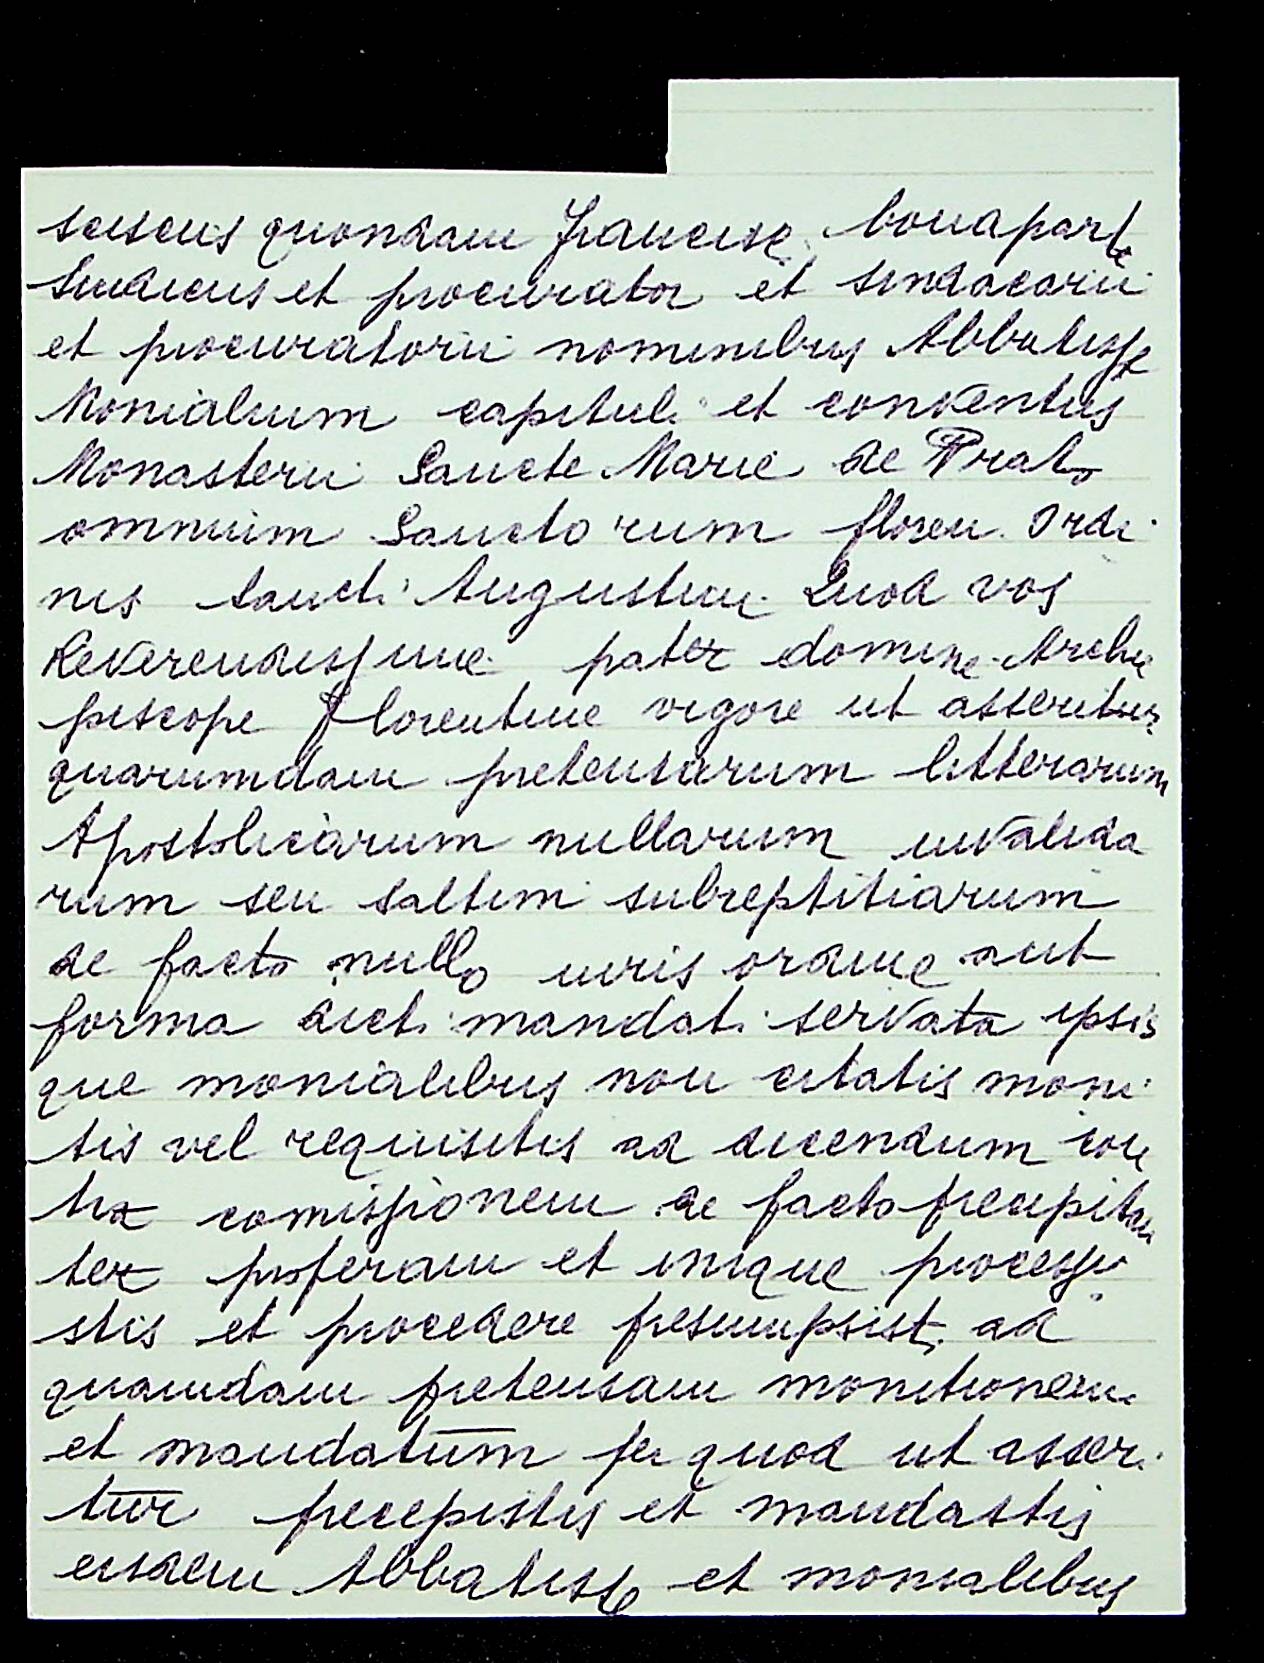 sciscus quondam Francisci bonaparte
Sindicus et procurator et sindacarii
et procuratorii nominibus Abbatisse
Monialium capituli et conventus
Monasterii Sancte Marie de Prato
omnium Sanctorum floren. Ordi
nis Sancti Augustini Quod vos
Reverendissime pater domine Archie
piscope Florentine vigore ut asseritur
quarumdam pretensarum litterarum
Apostolicarum nullarum invalida
rum seu saltim subreptitiarum
de facto nullo iuris ordine aut
forma dicti mandati servata ipsis
que monialibus non citatis moni
tis vel requisitis ad dicendum con
tra comissionem de facto precipitan
ter properam et inique processi
stis et procedere presumpsistis ad
quamdam pretensam monitionem
et mandatum per quod ut asseri
tur precepistis et mandastis
eisdem Abbatisse et monialibus